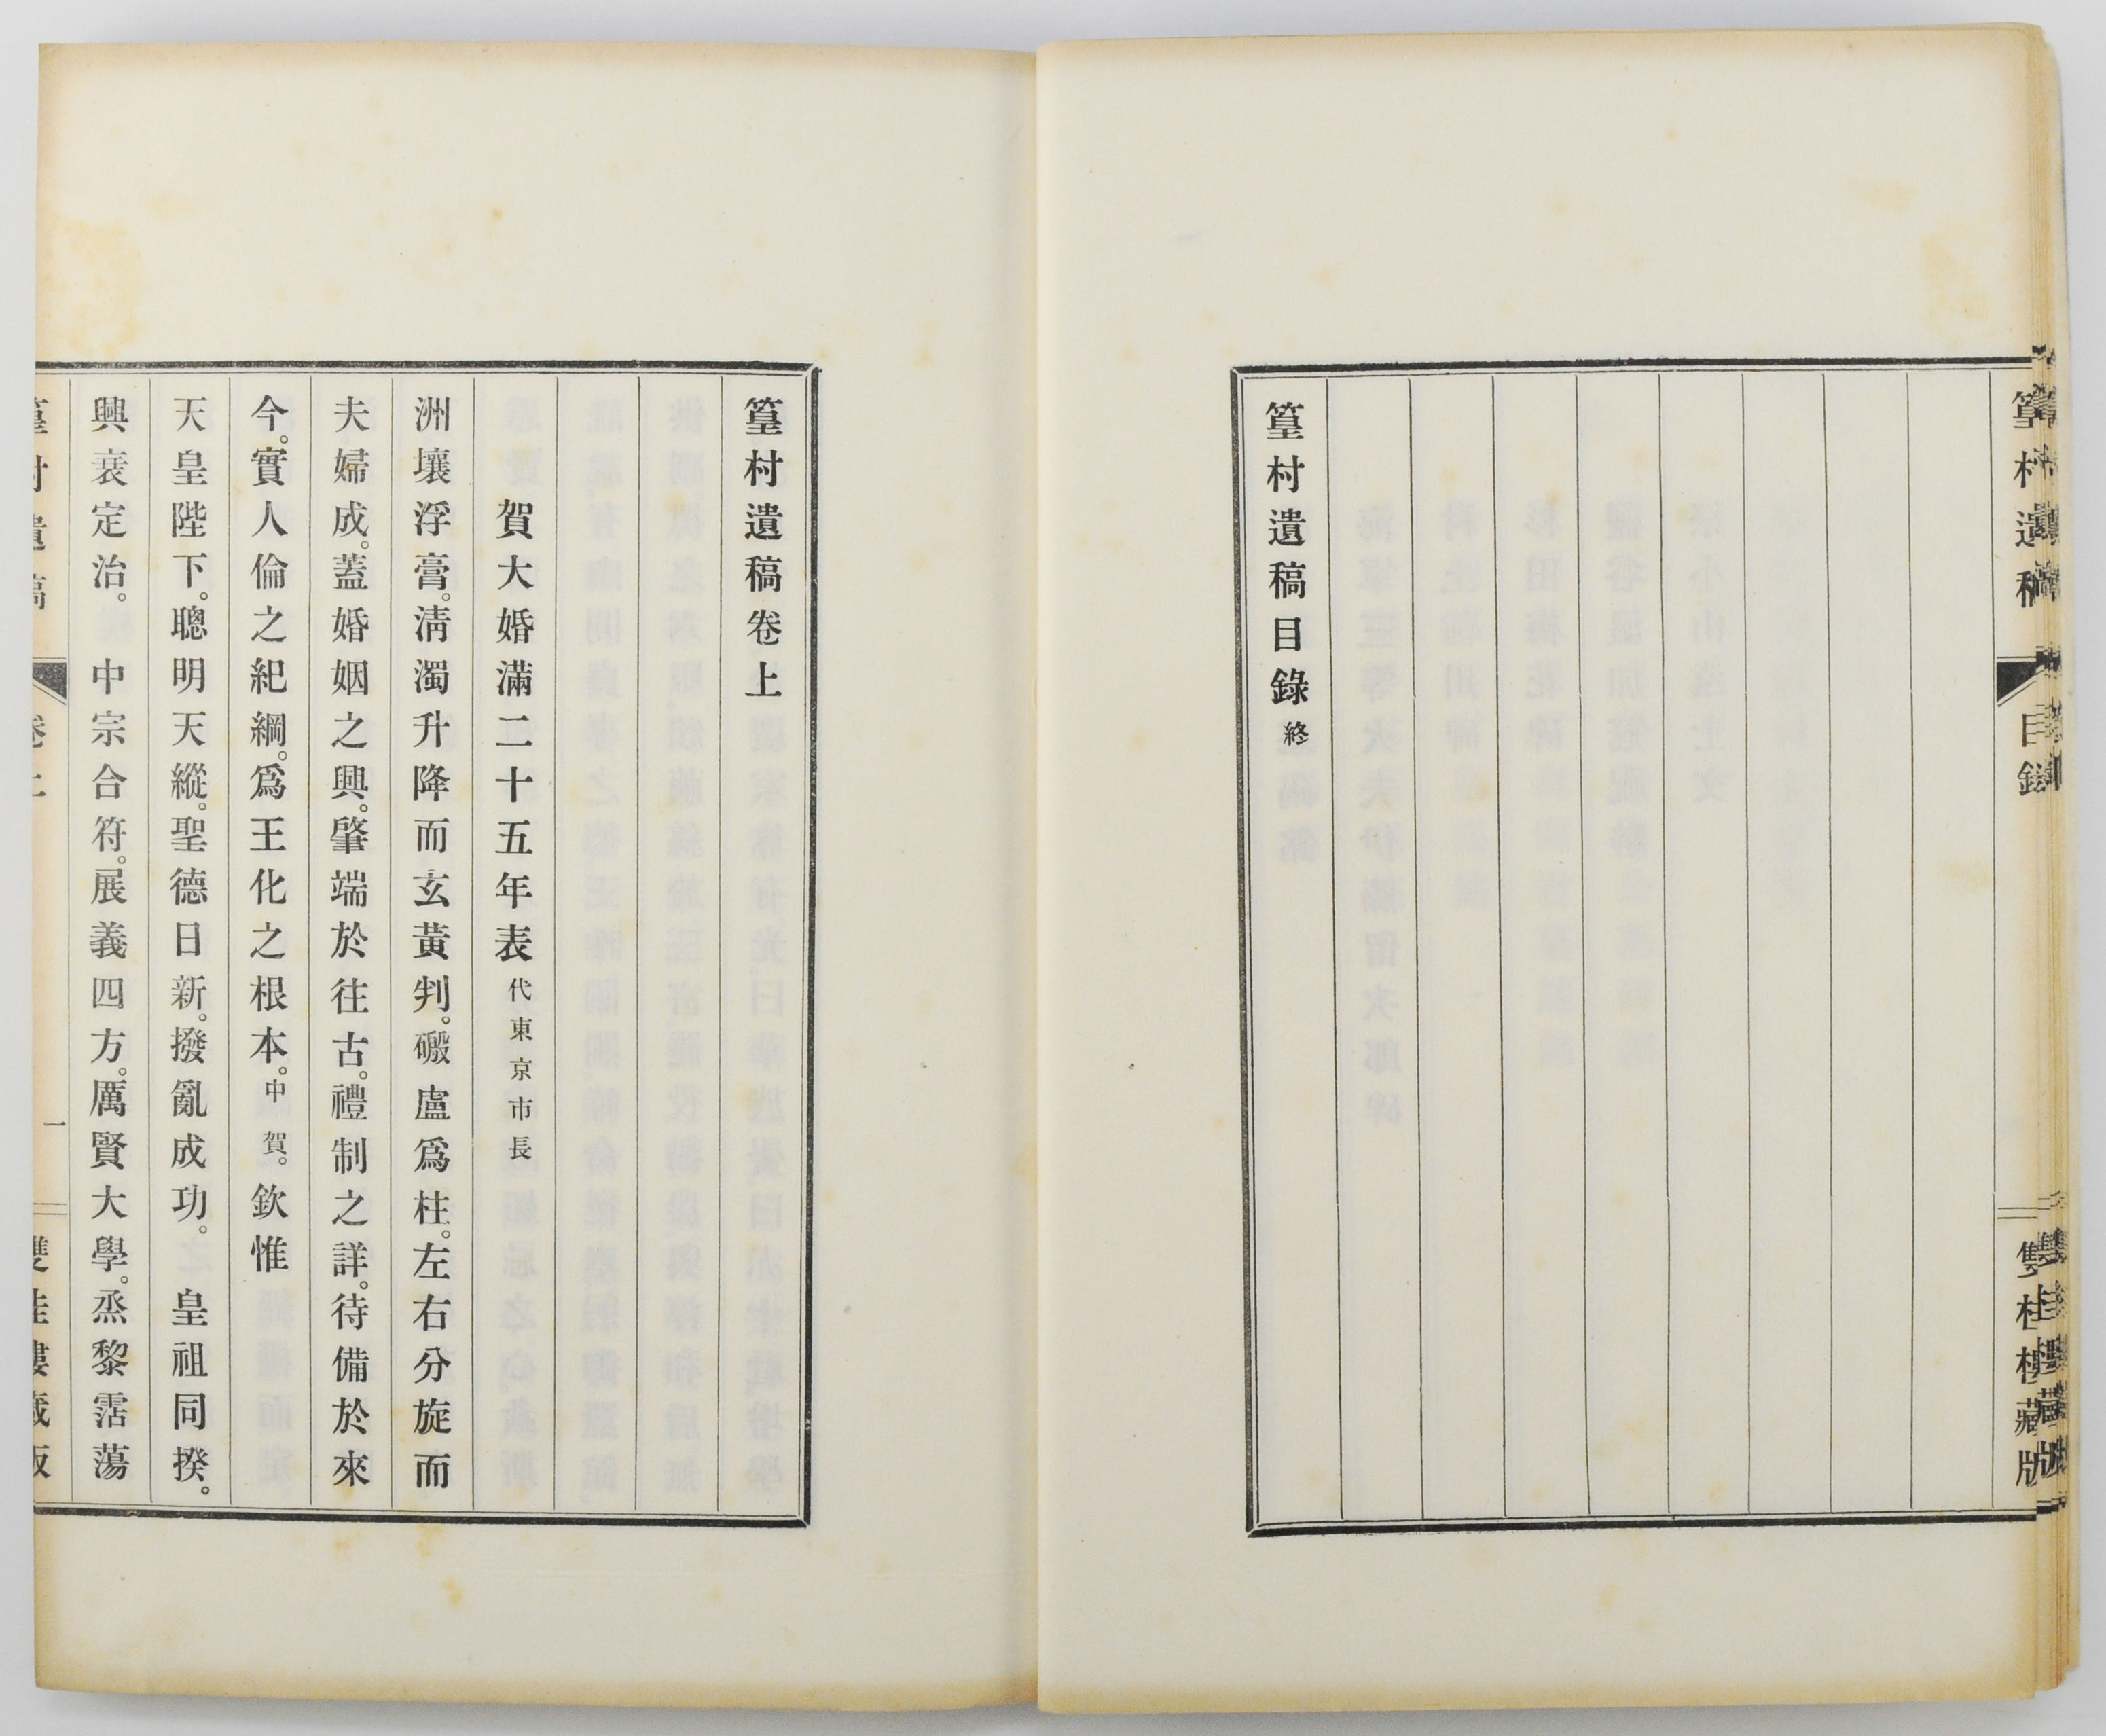 篁村遺稿
目錄
雙桂樓藏版
篁村遺稿目錄終
篁村遺稿卷上
賀大婚滿二十五年表代東京市長
洲壤浮膏。淸濁升降而玄黃判。礮盧爲柱。左右分旋而
夫婦成。蓋婚姻之興。肇端於往古。禮制之詳。待備於來
今。實人倫之紀綱。爲王化之根本。中賀。欽惟
天皇陛下。聰明天縱。聖德日新。撥亂成功。皇祖同揆。
興衰定治。中宗合符。展義四方。厲賢大學。烝黎霑蕩
篁村遺稿
卷上
一
雙桂樓藏版